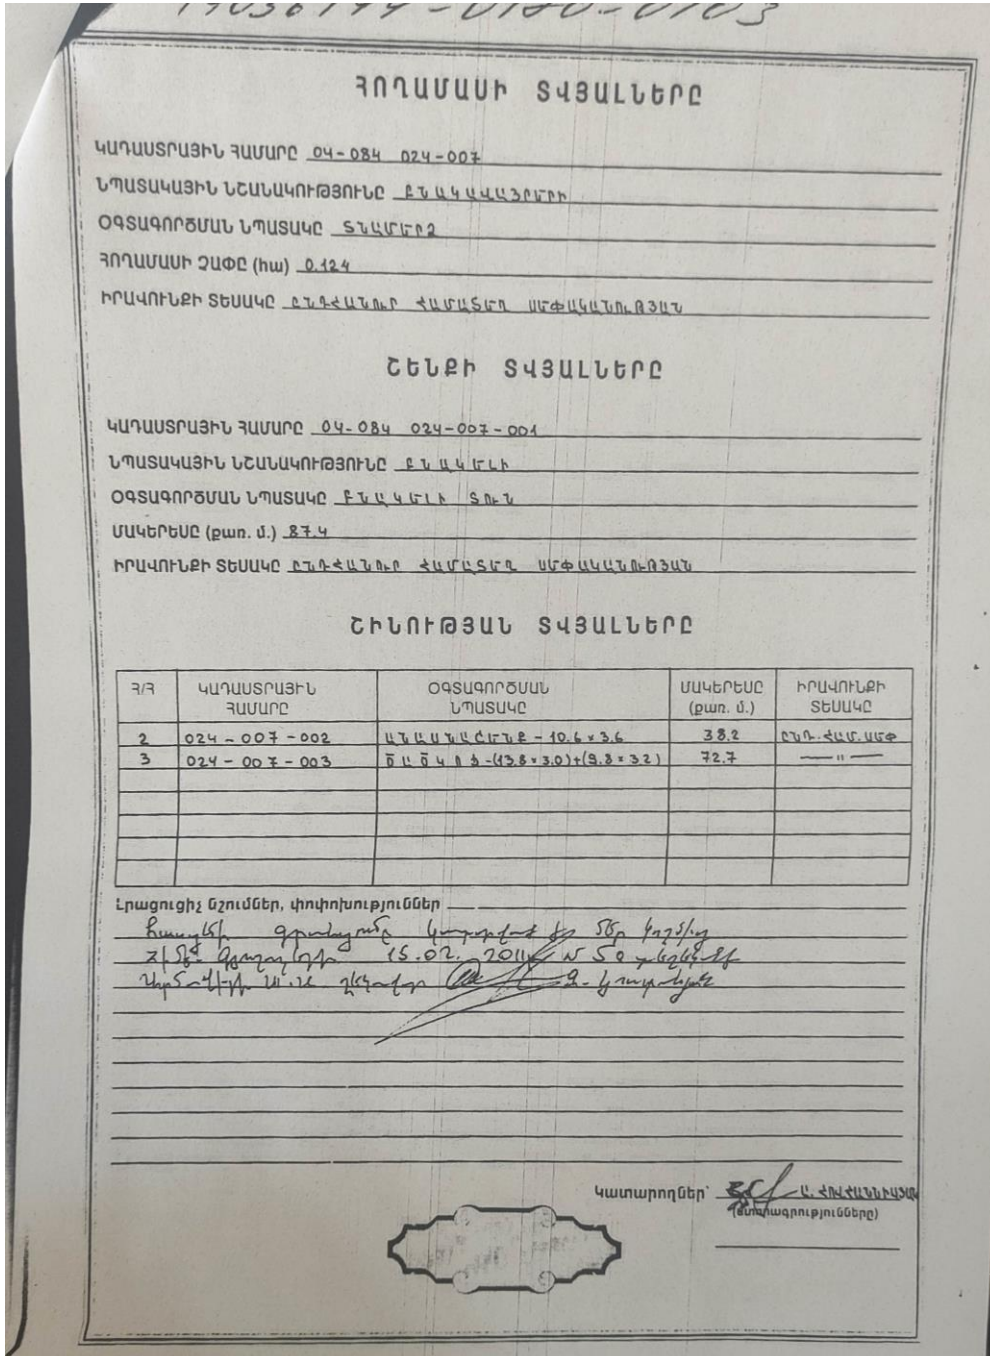 ՀՈՂԱՄԱՍԻ ՏՎՅԱԼՆԵՐԸ
ԿԱԴԱՍՏՐԱՅԻՆ ՀԱՄԱՐԸ 04-084 024-007
ՆՊԱՏԱԿԱՅԻՆ ՆՇԱՆԱԿՈՒԹՅՈՒՆԸ ԲՆԱԿԱՎԱՅՐԵՐԻ
ՕԳՏԱԳՈՐԾՄԱՆ ՆՊԱՏԱԿԸ ՏՆԱՄԵՐՁ
ՀՈՂԱՄԱՍԻ ՉԱՓԸ (հա) 0.124
ԻՐԱՎՈՒՆՔԻ ՏԵՍԱԿԸ ԸՆԴՀԱՆՈՒՐ ՀԱՄԱՏԵՂ ՍԵՓԱԿԱՆՈՒԹՅԱՆ
ՇԵՆՔԻ ՏՎՅԱԼՆԵՐԸ
ԿԱԴԱՍՏՐԱՅԻՆ ՀԱՄԱՐԸ 04-084 024-007-001
ՆՊԱՏԱԿԱՅԻՆ ՆՇԱՆԱԿՈՒԹՅՈՒՆԸ ԲՆԱԿԵԼԻ
ՕԳՏԱԳՈՐԾՄԱՆ ՆՊԱՏԱԿԸ ԲՆԱԿԵԼԻ ՏՈՒՆ
ՄԱԿԵՐԵՍԸ (քառ. մ.) 87.4
ԻՐԱՎՈՒՆՔԻ ՏԵՍԱԿԸ ԸՆԴՀԱՆՈՒՐ ՀԱՄԱՏԵՂ ՍԵՓԱԿԱՆՈՒԹՅԱՆ
ՇԻՆՈՒԹՅԱՆ ՏՎՅԱԼՆԵՐԸ
Հ/Հ ԿԱԴԱՍՏՐԱՅԻՆ ՀԱՄԱՐԸ ՕԳՏԱԳՈՐԾՄԱՆ ՆՊԱՏԱԿԸ ՄԱԿԵՐԵՍԸ (քառ. մ.) ԻՐԱՎՈՒՆՔԻ ՏԵՍԱԿԸ
2 024-007-002 ԱՆԱՍՆԱՇԵՆՔ - 10.6×3.6 38.2 ԸՆԴ. ՀԱՄ. ՍԵՓ
3 024-007-003 ԾԱԾԿՈՑ-(13.8×3.0)+(9.8×3.2) 72.7 —"—
Լրացուցիչ նշումներ, փոփոխություններ
15.02. 2011
Կատարողներ՝ Ա. ՀՈՎՀԱՆՆԻՍՅԱՆ
(ստորագրությունները)